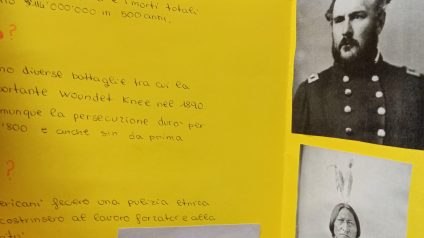 e i morti totali
114'000'000 in 500 anni.
?
no diverse battaglie tra cui la
portante Woundet Knee nel 1890.
munque la persecuzione durò per
'800 e anche sin da prima
?
ericani fecero una pulizia etnica
costrinsero al lavoro forzato e alla